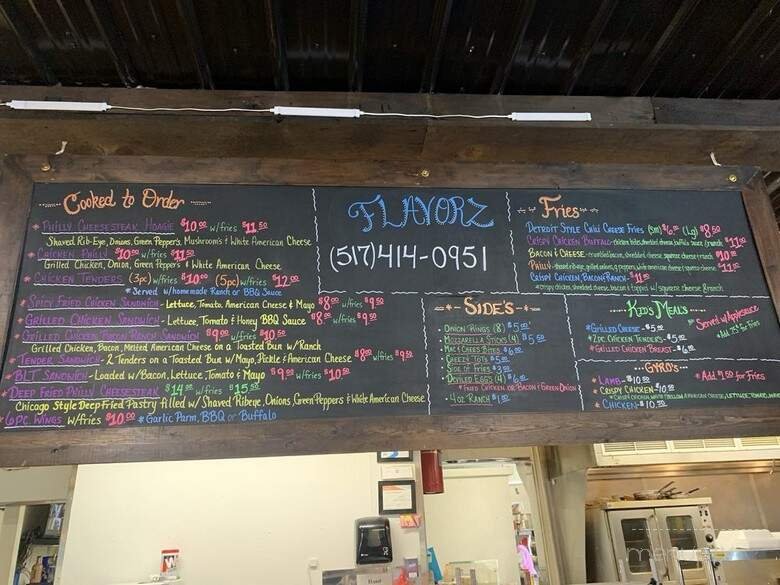 Cooked to Order
* Philly Cheesesteak Hoagie $10.00 w/fries $11.50
Shaved Rib-Eye, Onions, Green Peppers, Mushrooms & White American Cheese
* Chicken Philly $10.00 w/fries $11.50
Grilled Chicken, Onion, Green Peppers & White American Cheese
* Chicken Tenders (3pc) w/fries $10.00 (5pc) w/fries $12.00
* Served w/homemade Ranch or BBQ Sauce
* Spicy Fried Chicken Sandwich - Lettuce, Tomato, American Cheese & Mayo $8.00 w/fries $9.50
* Grilled Chicken Sandwich - Lettuce, Tomato & Honey BBQ Sauce $8.00 w/fries $9.50
* Grilled Chicken Bacon Ranch Sandwich $9.00 w/fries $10.50
Grilled Chicken, Bacon, Melted American Cheese on a Toasted Bun w/Ranch
* Tender Sandwich - 2 Tenders on a Toasted Bun w/Mayo, Pickle & American Cheese $8.00 w/fries $9.50
* BLT Sandwich - Loaded w/Bacon, Lettuce, Tomato & Mayo $9.00 w/fries $10.50
* Deep Fried Philly Cheesesteak $14.00 w/fries $15.50
Chicago Style Deep Fried Pastry filled w/Shaved Ribeye, Onions, Green Peppers & White American Cheese
* 6pc. Wings w/fries $10.00 * Garlic Parm, BBQ or Buffalo
FLAVORZ
(517)414-0951
Side's
* Onion Rings (8) $5.00
* Mozzarella Sticks (4) $5.50
* Mac & Chees Bites $6.00
* Cheesy Tots $5.00
* Side of Fries $3.00
* Deviled Eggs (4) $6.00
* Fried Chicken or Bacon & Green Onion
* 4oz Ranch $1.00
Fries
Detroit Style Chili Cheese Fries (Sm) $6.00 (Lg) $8.50
Crispy Chicken Buffalo - chicken bites, shredded cheese, buffalo sauce, ranch $11.00
Bacon & Cheese - crumbled bacon, shredded cheese, squeeze cheese, ranch $10.00
Philly - shaved ribeye, grilled onions, g. peppers, white american cheese & squeeze cheese $11.00
Crispy Chicken Bacon Ranch - $11.00
* crispy chicken, shredded cheese, bacon & topped w/ squeeze cheese & ranch
Kid's Meals
* Grilled Cheese - $5.00
* 2pc. Chicken Tenders - $5.00
* Grilled Chicken Breast - $6.00
Served w/Applesauce
* Add .75¢ for Fries
Gyro's
* Lamb - $10.00
* Crispy Chicken - $10.00
* Chicken - $10.50
* Add $1.50 for Fries